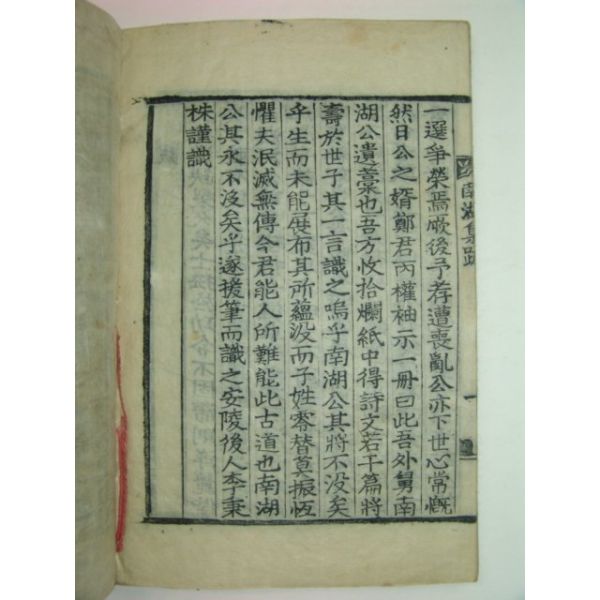 一選爭榮焉厥後予荐遭喪亂公亦下世心常慨
然日公之婿鄭君丙權袖示一冊曰此吾外舅南
湖公遺藁也吾方收拾爛紙中得詩文若干篇將
壽於世子其一言識之嗚乎南湖公其將不沒矣
乎生而未能展布其所蘊沒而子姓零替莫振恆
懼夫泯滅無傳今君能人所難能此古道也南湖
公其永不沒矣乎遂援筆而識之安陵後人李秉
株謹識
南湖集跋
一